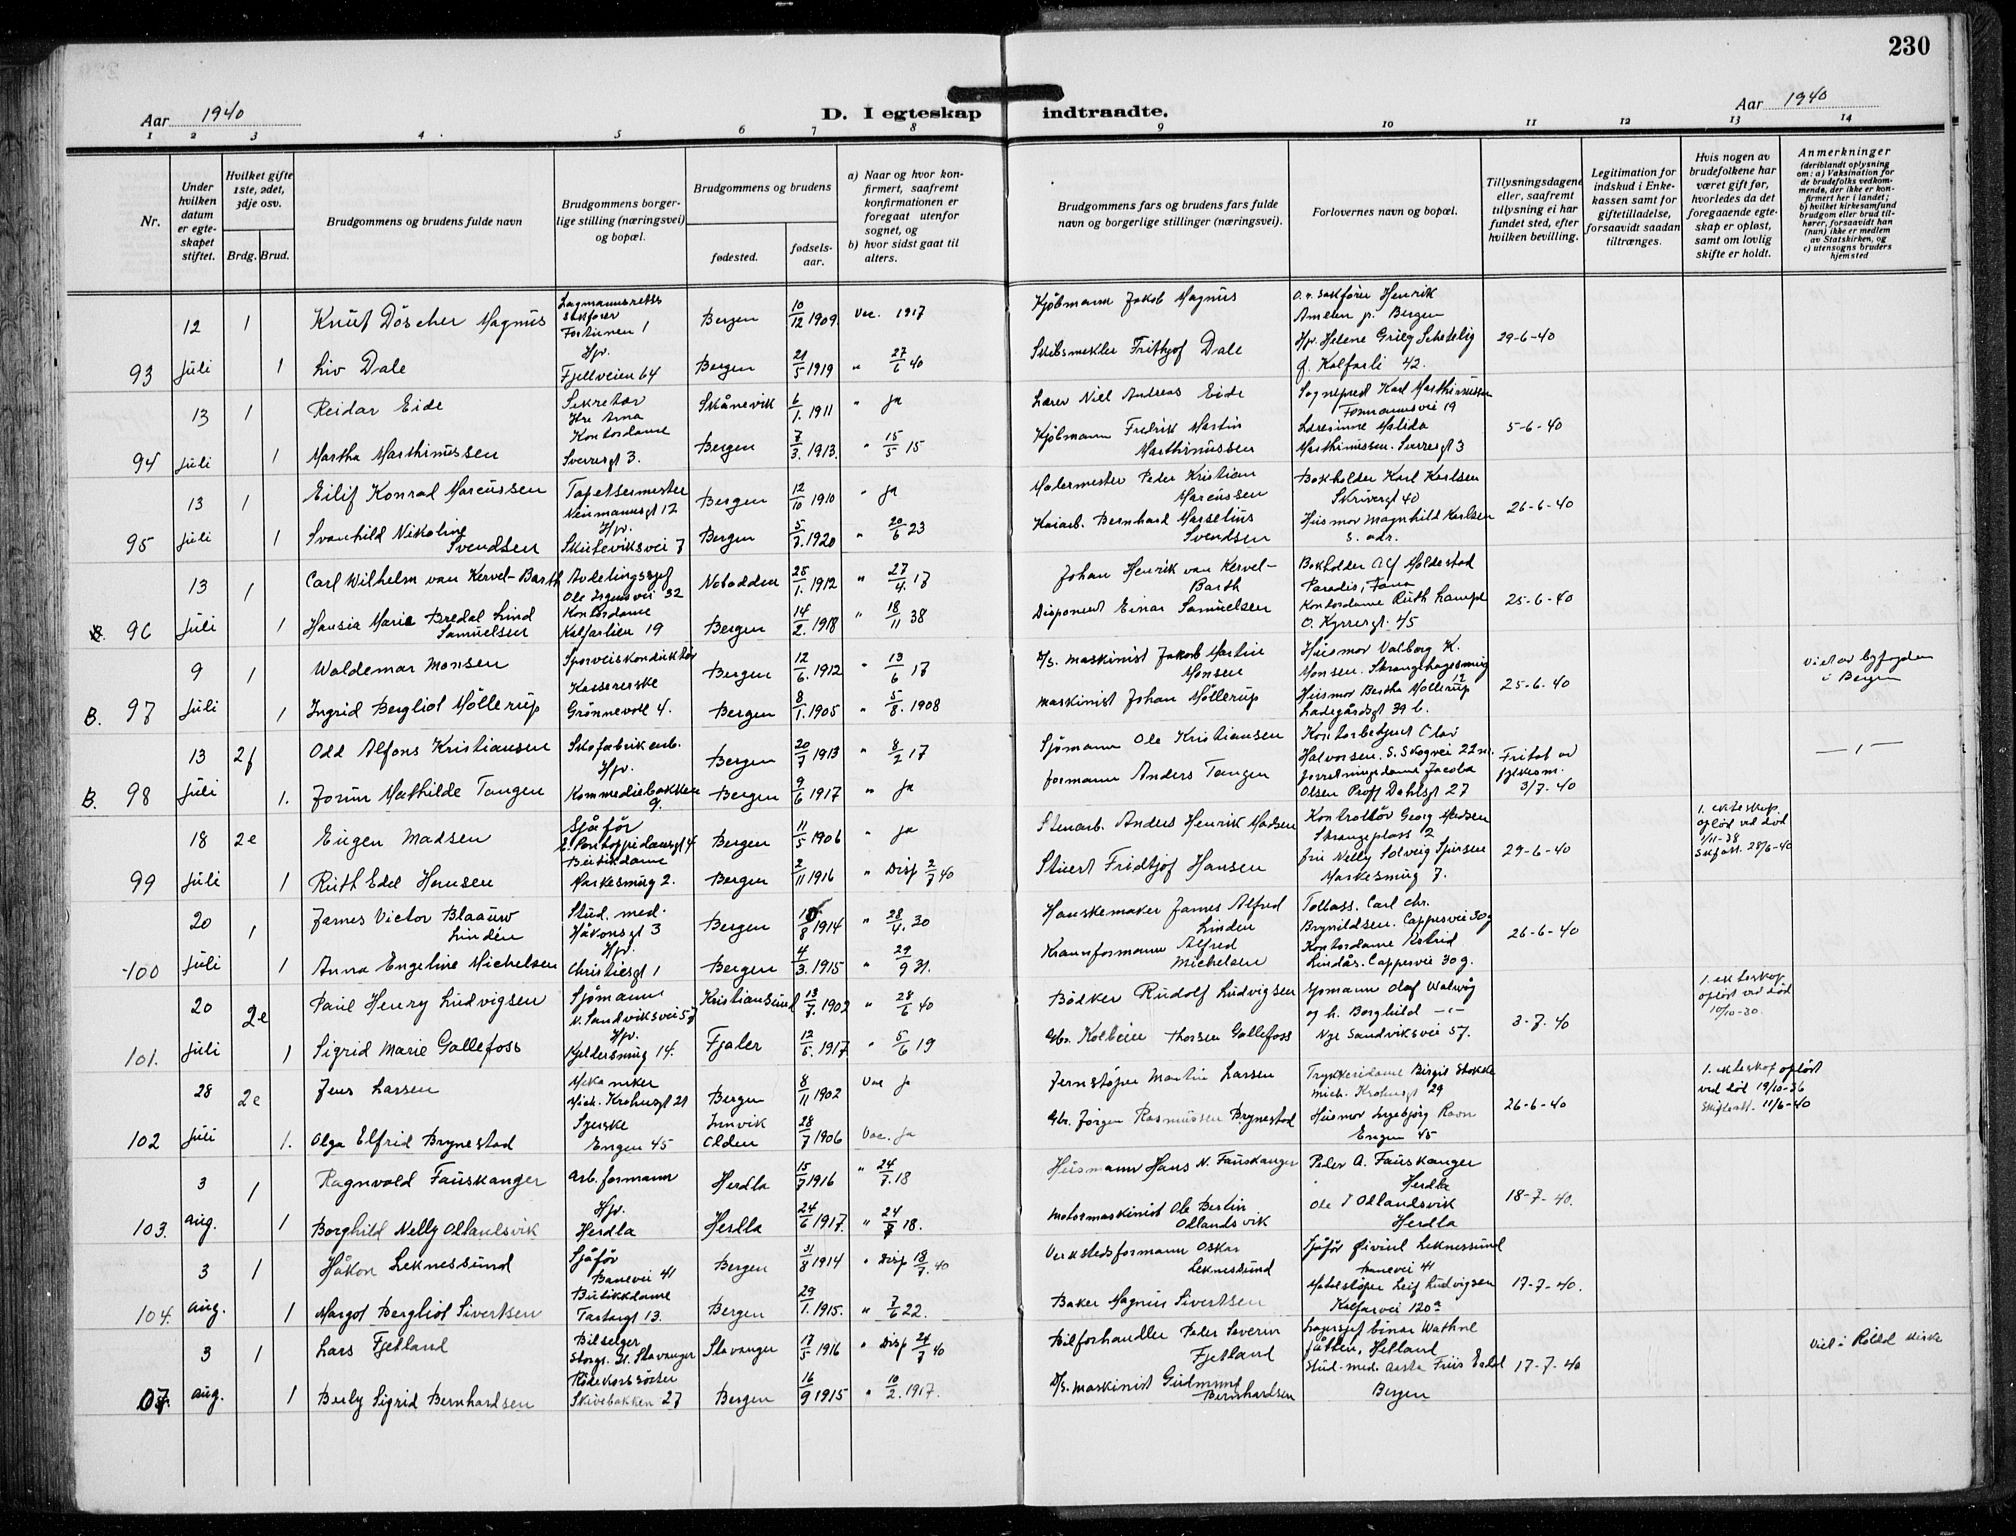 230
Aar 1940
D. I egteskap indtraadte.
Aar 1940
1 2 3 4 5 6 7 8 9 10 11 12 13 14
Nr.
Under hvilken datum er egteskapet stiftet.
Hvilket gifte 1ste, 2det, 3dje osv.
Brdg. Brud.
Brudgommens og brudens fulde navn
Brudgommens borgerlige stilling (næringsvei) og bopæl.
Brudgommens og brudens
fødested.
fødselsaar.
a) Naar og hvor konfirmert, saafremt konfirmationen er foregaat utenfor sognet, og
b) hvor sidst gaat til alters.
Brudgommens fars og brudens fars fulde navn og borgerlige stillinger (næringsvei).
Forlovernes navn og bopæl.
Tillysningsdagene eller, saafremt tillysning ei har fundet sted, efter hvilken bevilling.
Legitimation for indskud i Enkekassen samt for giftetilladelse, forsaavidt saadan tiltrænges.
Hvis nogen av brudefolkene har været gift før, hvorledes da det foregaaende egteskap er opløst, samt om lovlig skifte er holdt.
Anmerkninger
(deriblandt oplysning om: a) Vaksination for de brudefolks vedkommende, der ikke er konfirmert her i landet; b) hvilket kirkesamfund brudgom eller brud tilhører, forsaavidt han (hun) ikke er medlem av Statskirken, og c) utensogns bruders hjemsted
12 1 Knut Döscher Magnus Lagmannsretts sakfører Fortunen 1 Bergen 10/12 1909. Vac. 1917 Kjøbmann Jakob Magnus O.r. sakfører Henrik Ameln jr. Bergen
93 Juli 1 Liv Dale Hjv. Fjellveien 64 Bergen 21/5 1919 " 27/6 40 Skibsmekler Frithjof Dale Hjv. Helene Grieg Schetelig Kalfarli 42. 29-6-40
13 1 Reidar Eide Sekretær Arna Skånevik 6/1. 1911 " ja Lærer Niel Andreas Eide Sogneprest Karl Marthinussen Formannsvei 19
94 Juli 1 Martha Marthinussen Kontordame Sverresgt 3. Bergen 7/3. 1913. " 15/5 15 Kjøbmann Fredrik Martin Marthinussen Lærerinne Matilda Marthinussen. Sverresgt 3 5-6-40
13 1 Eilif Konrad Marcussen Tapetsermester Neumannsgt 12 Bergen 12/10 1910 " ja Malermester Peder Kristian Marcussen Bokholder Karl Karlsen Skivergt 40
95 Juli 1 Svanhild Nikoline Svendsen Hjv. Skuteviksvei 7 Bergen 5/7. 1920 " 20/6 23 Kaiarb. Bernhard Marselius Svendsen Husmor Magnhild Karlsen s. adr. 26-6-40
13 1 Carl Wilhelm van Kervel-Barth Avdelingssjef Ole Irgensvei 32 Notodden 25/1. 1912 " 27/4. 17 Johan Henrik van Kervel-Barth Bokholder Alf Moldestad Paradis, Fana
B. 96 Juli 1 Hansia Marie Bredal Lind Samuelsen Kontordame Kalfarlien 19 Bergen 14/2. 1918 " 18/11 38 Disponent Einar Samuelsen Kontordame Ruth Lampe O. Kyrresgt. 45 25-6-40
9 1 Waldemar Monsen Sporveiskonduktør Bergen 12/6. 1912 " 13/6 17 D/s. maskinist Jakob Martin Monsen Husmor Valborg K. Monsen. Strangehagesmug 12 Viet av byfogden i Bergen
B. 97 Juli 1 Ingrid Bergliot Möllerup Kassererske Grønnevoll 4. Bergen 8/1. 1905 " 5/8. 1908 Maskinist Johan Möllerup Husmor Bertha Möllerup Ladegårdsgt 39 b. 25-6-40
13 2f Odd Alfons Kristiansen Skofabrikarb. Bergen 20/7 1913 " 8/2 17 Sjømann Ole Kristiansen Kontorbetjent Olav Halvorsen. S. Skogvei 22 — " —
B. 98 Juli 1. Jorun Mathilde Tangen Hjv. Kommediebakken 9. Bergen 9/6 1917 " ja Formann Anders Tangen Forretningsdame Jacoba Olsen Proff Dahlsgt 27 Fritat av fylkesm. 3/7. 40
18 2e Eugen Madsen Sjåfør Bergen 11/5 1906 " ja Stenarb. Anders Henrik Madsen Kontrollør Georg Madsen Strangeplass 2 1. ekteskap opløst ved død 1/11-38 Skifatt. 28/6-40
99 Juli 1 Ruth Edel Hansen Butikdame Markesmug 2. Bergen 2/11 1916 " Disp 2/7 40 Stuert Fridtjof Hansen Fru Nelly Solveig Markesmug 7. 29-6-40
20 1 James Victor Blaauw Lindén Stud. med. Håkonsgt 3 Bergen 10/8 1914 " 28/4. 30 Hanskemaker James Alfred Linden Tollass. Carl Chr. Brynildsen. Cappesvei 30 g
100 Juli 1 Anna Engeline Michelsen Hjv. Christiesgt 1 Bergen 4/3. 1915 " 29/9 31. Kranformann Alfred Michelsen Kontordame Astrid Lindås. Cappesvei 30 g. 26-6-40
20 2e Paul Henry Ludvigsen Sjømann N. Sandviksvei 57 Kristiansund 13/7. 1902 " 28/6 40 Bødker Rudolf Ludvigsen Sjømann Olaf Walvåg og h. Borghild — " — 1. ekteskap opløst ved død 10/10-30.
101. Juli 1 Sigrid Marie Gallefoss Hjv. Kjeldersmug 14. Fjaler 12/5. 1917 " 5/6 19 Gbr. Kolbein Thorsen Gallefoss Nye Sandviksvei 57. 3-7-40
28 2e Jens Larsen Mekaniker Mich. Krohnsgt 21 Bergen 8/11 1902 Vac ja Jernstøper Martin Larsen Trykkeridame Birgit Stokke Mich. Krohnsgt 29 1. ekteskap opløst ved død 19/10-36 Skifteatt. 11/6-40
102 Juli 1. Olga Elfrid Brynestad Syerske Engen 45 Innvik Olden 28/7 1906 Vac. ja Gbr. Jørgen Rasmussen Brynestad Husmor Ingebjørg Ravn Engen 45 26-6-40
3 1 Ragnvald Fauskanger Arb. formann Herdla 15/7 1916 " 24/7. 18 Husmann Hans N. Fauskanger Peder A. Fauskanger Herdla
103. Aug. 1 Borghild Nelly Ollandsvik Hjv. Herdla Herdla 24/6 1917. " 24/7 18. Motormaskinist Ole Berlin Ollandsvik Ole J Ollandsvik Herdla 18-7-40.
3 1 Håkon Leknessund Sjåfør Banevei 41 Bergen 31/8 1914 " Disp 18/7. 40 Verkstedsformann Oskar Leknessund Sjåfør Øivind Leknessund Banevei 41
104. Aug. 1 Margot Bergliot Sivertsen Butikkdame Tartargt 13. Bergen 29/1. 1915. " 7/6 22. Baker Magnus Sivertsen Metalstøper Leif Ludvigsen Kalfarvei 120a 17-7-40.
3 1 Lars Fjetland Bilselger Stavanger Stavanger 17/5 1916 " Disp 24/7 40 Bilforhandler Peder Severin Fjetland Lagersjef Einar Wathne Jåtten, Hetland Viet i Röldal kirke
07. Aug. 1 Berly Sigrid Bernhardsen Rødekorssøster Skivebakken 27 Bergen 16/9 1915 " 10/2. 1917. D/s. maskinist Gudmund Bernhardsen Stud. med. Aasta Friis Bergen 17-7-40